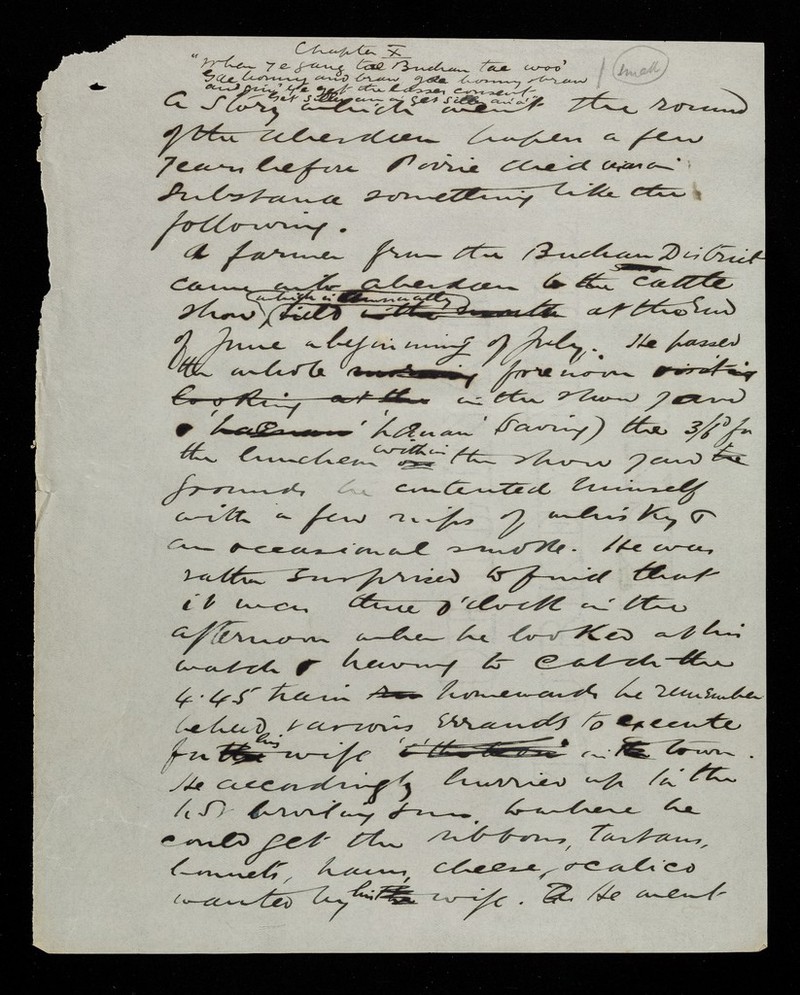 Chapter X
"When ye gang tae Buchan tae woo'
Gae bonny and braw gae bonny & braw | small
and gin ye get the lasses consent
Get siller an a' get siller an a'
A Story which went the round
of the Aberdeen papers a few
years before Pirie died was in
substance something like the
following.
A farmer from the Buchan District
came into Aberdeen to the cattle
show, (which is usually
held in the month at the end
of June or beginning of July. He passed
the whole morning forenoon visiting
looking at the in the show yard
& 'hainan' (saving) the 3/6d for
the luncheon within on the show yard the
grounds he contented himself
with a few nips of whisky &
an occasional smoke. He was
rather surprised to find that
it was three o'clock in the
afternoon when he looked at his
watch & having to catch the
4.45 train homewards he remember
he had various errands to execute
for the his wife in the town.
He accordingly hurried up in the
hot broiling sun to where he
could get the ribbons, tartans,
bonnets, hams, cheese, & calico
wanted by his the wife. He went